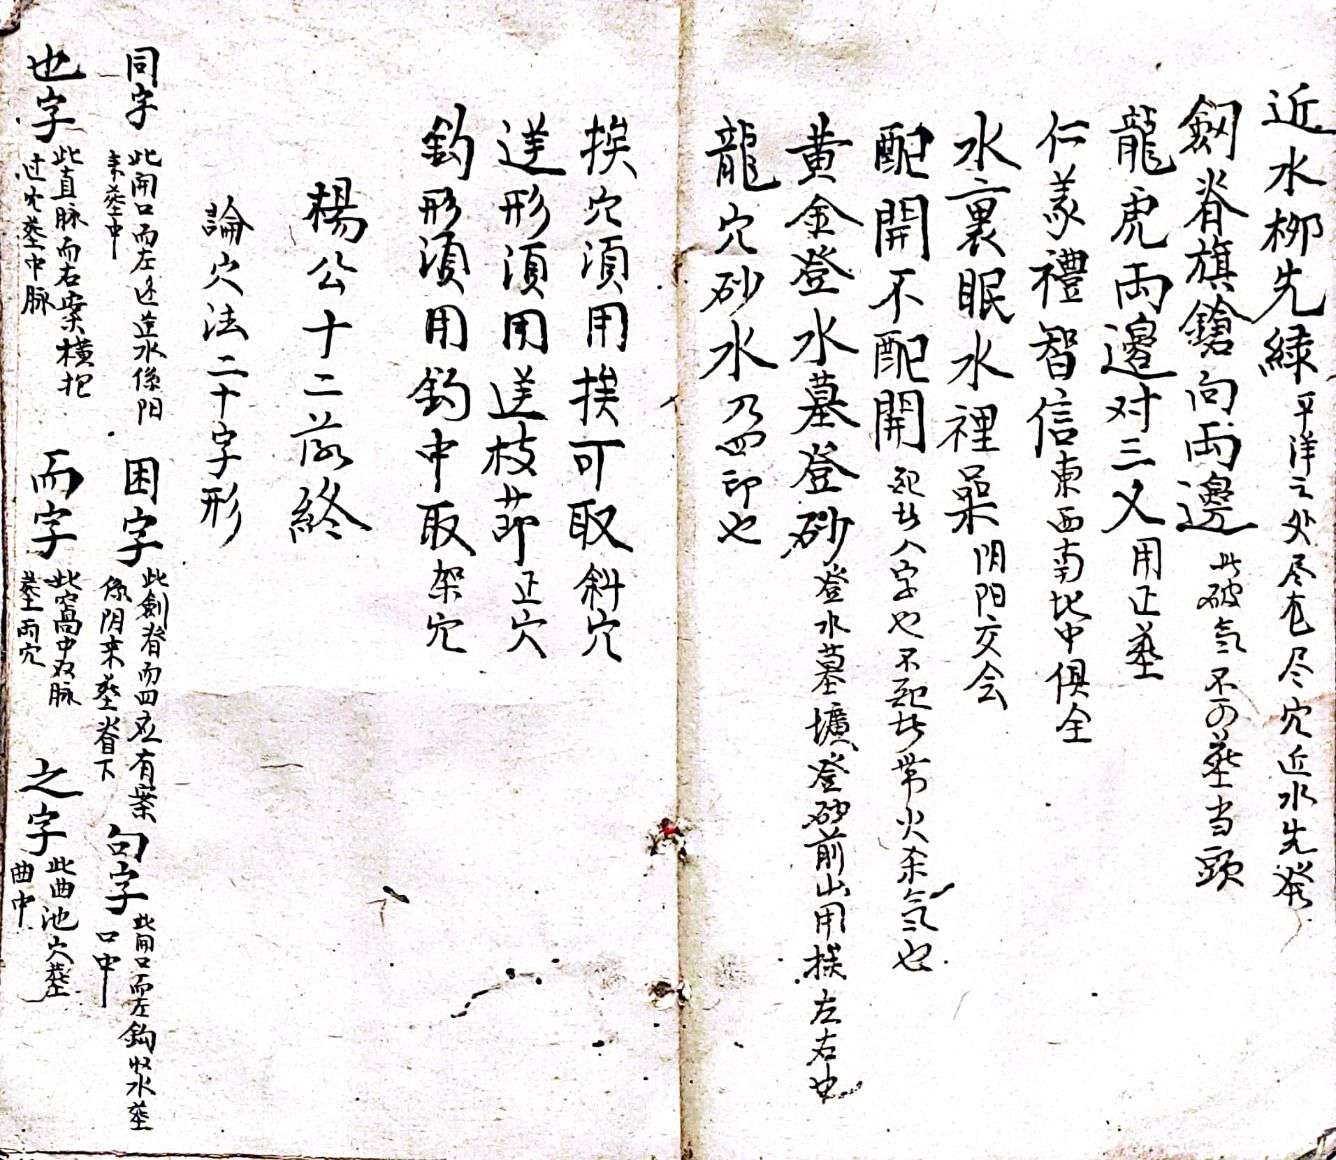 近水柳先緑 平洋之处尽龙尽穴近水先發
劍脊旗鎗向両邊 此破氣不可塟当頭
龍虎両邊对三义 用正塟
仁義禮智信 東西南北中俱全
水裏眠水裡 阴阳交会
配開不配開 八字也不配此帯火杀气也
黄金登水墓登砂 登水墓壙登砂前山用挨左右也
龍穴砂水乃四印也
挨穴須用挨可取斜穴
送形須用送枝節正穴
鈎形須用鈎中取架穴
楊公十二落終
論穴法二十字形
同字 此開口而左逆水係阳来塟中
困字 此劍脊而四应有案係阴来塟脊下
句字 此開口而左鈎收水塟口中
也字 此直脉而右案橫抱过穴塟中脉
而字 此窩中双脉塟両穴
之字 此曲池穴塟曲中